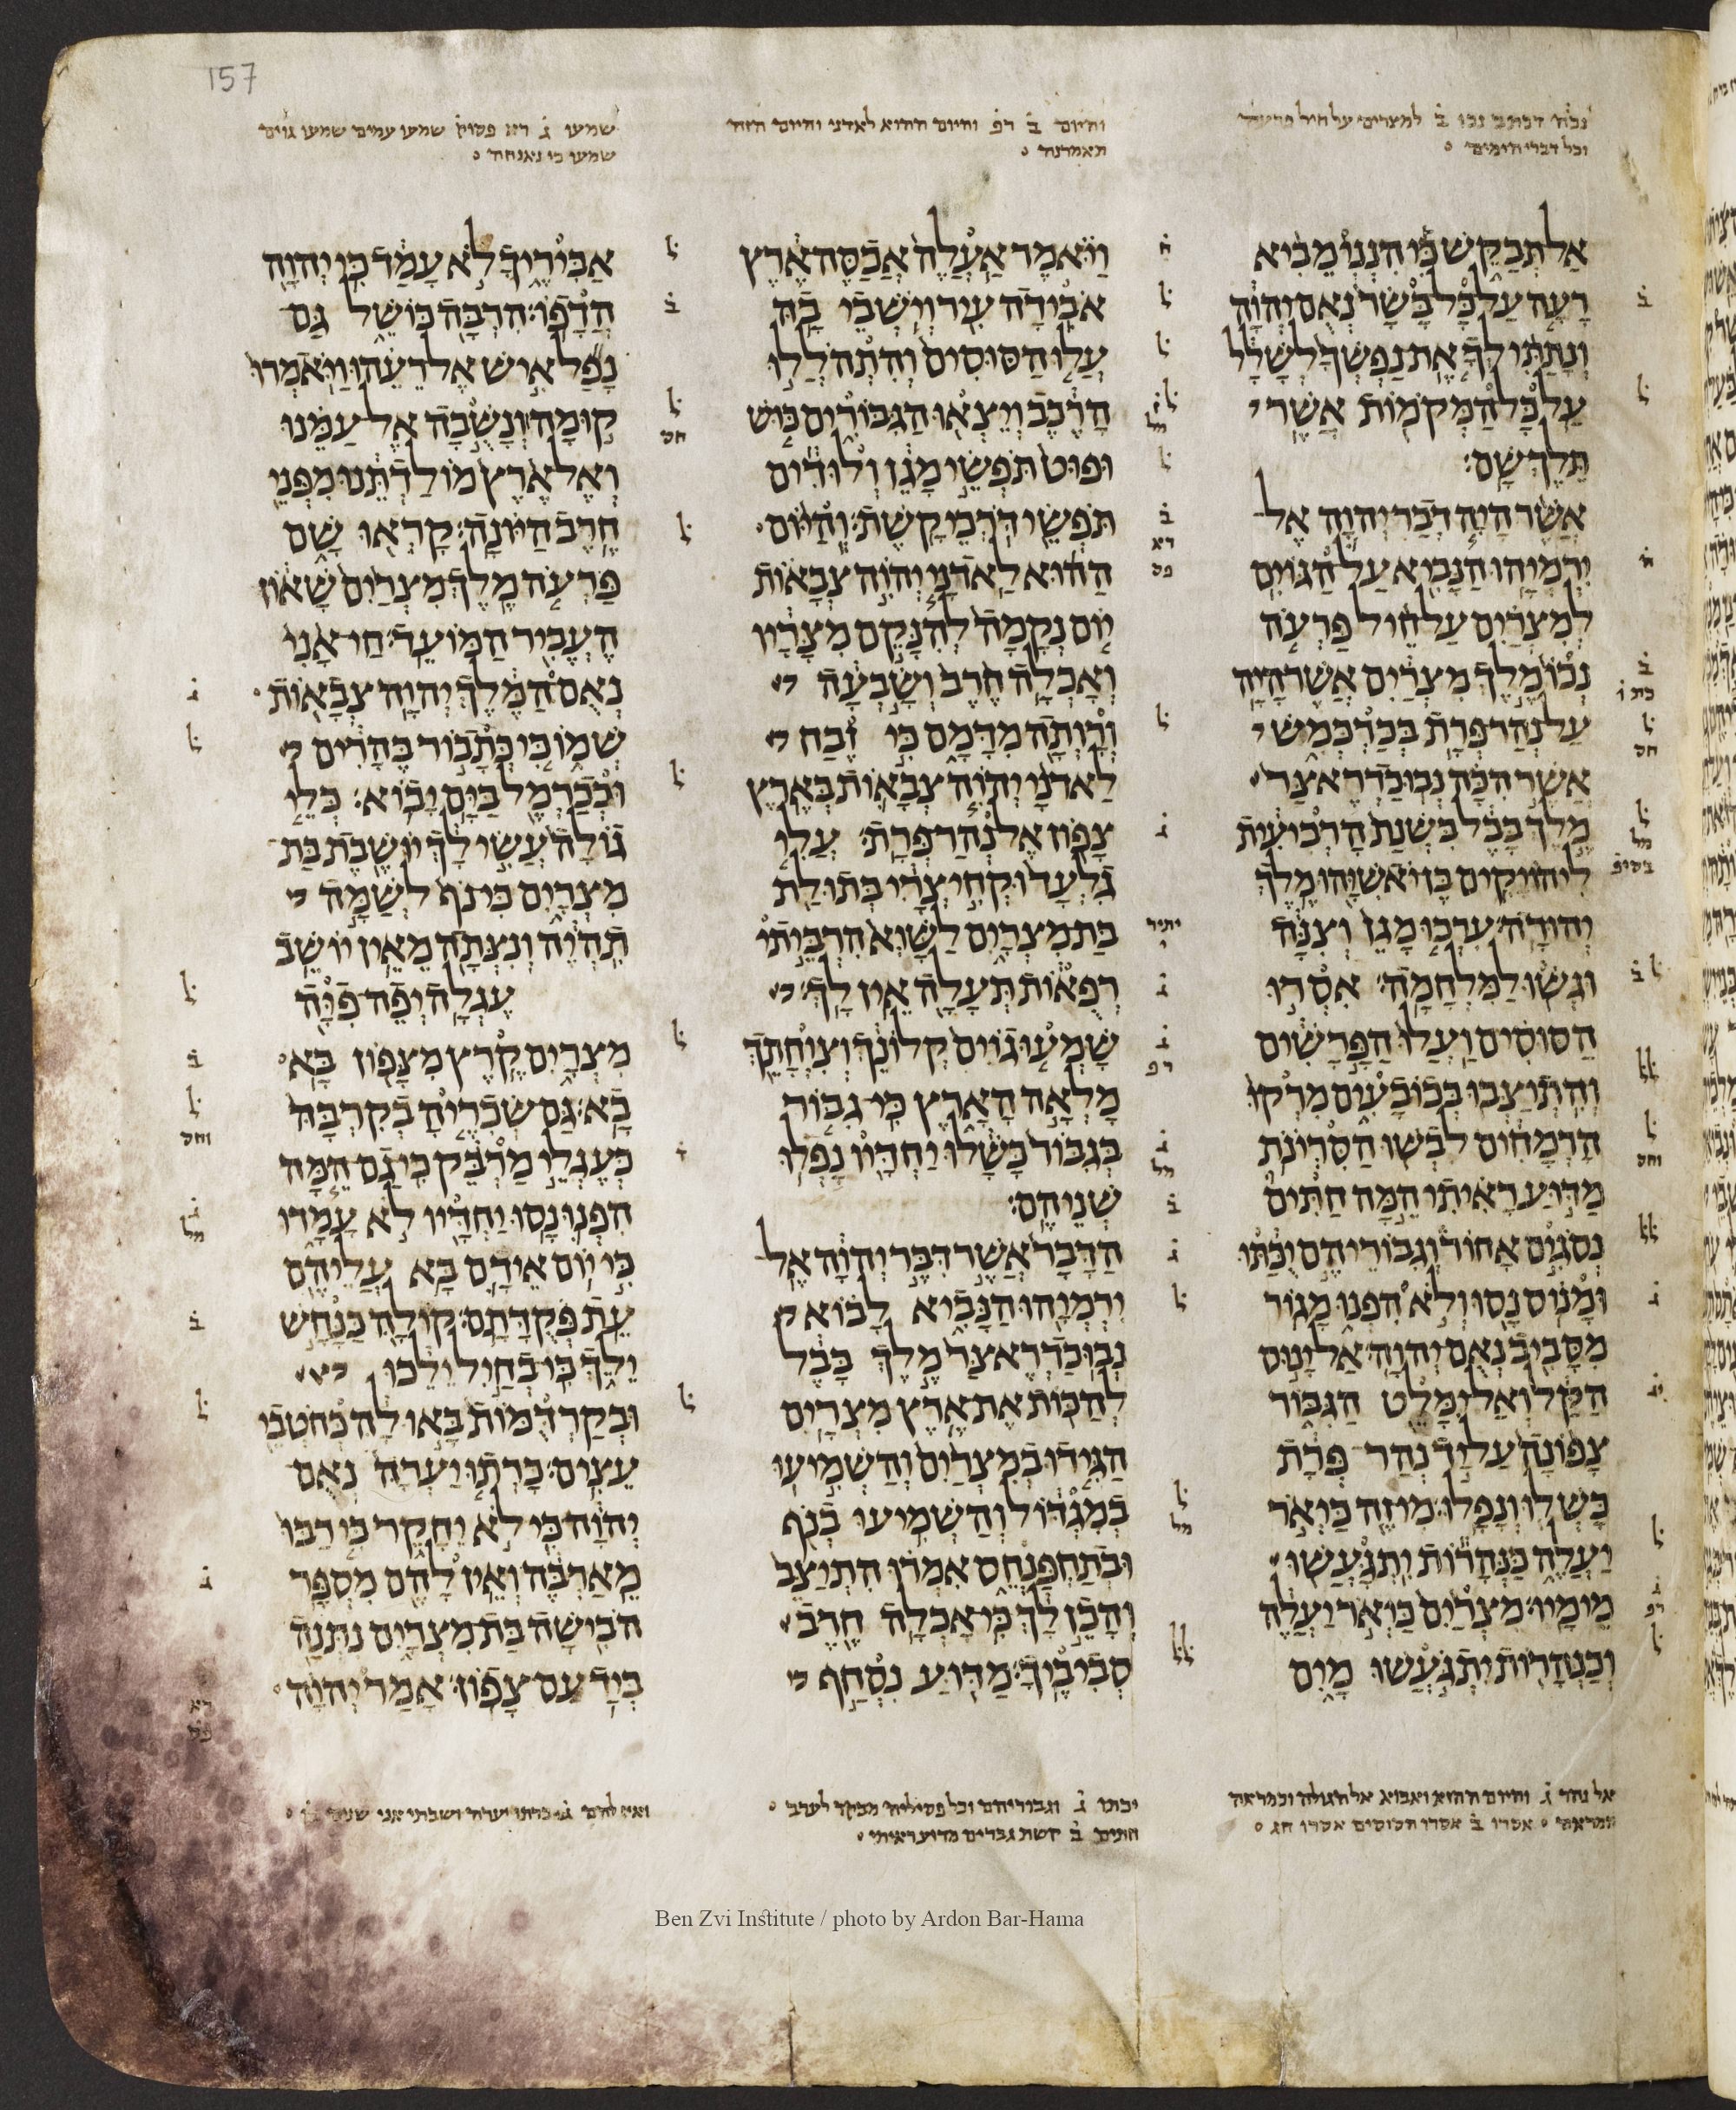 157
נכה דכתב נכו ב למצרים על חיל פרעה
וכל דברי הימים
והיום ב רפ והיום ההוא לאדני והיום הזה
תאמרנה
שמעו ג רא פסוק שמעו עמים שמעו גוים
שמעו כי נאנחה
אל תבקש כי הנני מביא
רעה על כל בשר נאם יהוה
ונתתי לך את נפשך לשלל
על כל המקמות אשר
תלך שם׃
אשר היה דבר יהוה אל
ירמיהו הנביא על הגוים
למצרים על חיל פרעה
נכו מלך מצרים אשר היה
על נהר פרת בכרכמש
אשר הכה נבוכדראצר
מלך בבל בשנת הרביעית
ליהויקים בן יאשיהו מלך
יהודה׃ ערכו מגן וצנה
וגשו למלחמה׃ אסרו
הסוסים ועלו הפרשים
והתיצבו בכובעים מרקו
הרמחים לבשו הסרינת
מדוע ראיתי המה חתים
נסגים אחור וגבוריהם יכתו
ומנוס נסו ולא הפנו מגור
מסביב נאם יהוה׃ אל ינוס
הקל ואל ימלט הגבור
צפונה על יד נהר פרת
כשלו ונפלו׃ מי זה כיאר
יעלה כנהרות יתגעשו
מימיו׃ מצרים כיאר יעלה
וכנהרות יתגעשו מים
ויאמר אעלה אכסה ארץ
אבידה עיר וישבי בה
עלו הסוסים והתהללו
הרכב ויצאו הגבורים כוש
ופוט תפשי מגן ולודים
תפשי דרכי קשת׃ והיום
ההוא לאדני יהוה צבאות
יום נקמה להנקם מצריו
ואכלה חרב ושבעה
ורותה מדמם כי זבח
לאדני יהוה צבאות בארץ
צפון אל נהר פרת׃ עלי
גלעד וקחי צרי בתולת
בת מצרים לשוא הרביתי
רפאות תעלה אין לך׃
שמעו גוים קלונך וצוחתך
מלאה הארץ כי גבור
בגבור כשלו יחדיו נפלו
שניהם׃
הדבר אשר דבר יהוה אל
ירמיהו הנביא לבוא
נבוכדראצר מלך בבל
להכות את ארץ מצרים
הגידו במצרים והשמיעו
במגדול והשמיעו בנף
ובתחפנחס אמרו התיצב
והכן לך כי אכלה חרב
סביביך׃ מדוע נסחף
אביריך לא עמד כי יהוה
הדפו׃ הרבה כושל גם
נפל איש אל רעהו ויאמרו
קומה ונשבה אל עמנו
ואל ארץ מולדתנו מפני
חרב היונה׃ קראו שם
פרעה מלך מצרים שאון
העביר המועד׃ חי אני
נאם המלך יהוה צבאות
שמו כי כתבור בהרים
וככרמל בים יבוא׃ כלי
גולה עשי לך יושבת בת
מצרים כי נף לשמה
תהיה ונצתה מאין יושב
עגלה יפה פיה
מצרים קרץ מצפון בא
בא׃ גם שכריה בקרבה
כעגלי מרבק כי גם המה
הפנו נסו יחדיו לא עמדו
כי יום אידם בא עליהם
עת פקדתם׃ קולה כנחש
ילך כי בחיל ילכו
ובקרדמות באו לה כחטבי
עצים׃ כרתו יערה נאם
יהוה כי לא יחקר כי רבו
מארבה ואין להם מספר
הבישה בת מצרים נתנה
ביד עם צפון׃ אמר יהוה
אל נהר ג והיום ההוא ואבוא אל הגולה וכמראה
המראה אסרו ב אסרו הסוסים אסרו חג
יכתו ג וגבוריהם וכל פסיליה מבקר לערב
חתים ב קשת גברים מדוע ראיתי
ואין להם
Ben Zvi Institute / photo by Ardon Bar-Hama